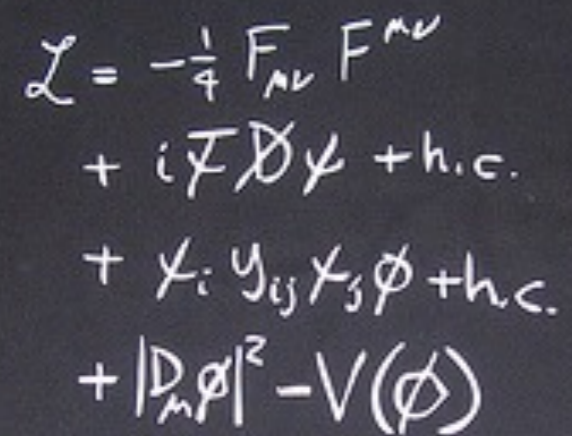 ℒ = -¼ F_μν F^μν
+ iψ̄D̸ψ + h.c.
+ ψᵢ yᵢⱼ ψⱼ ϕ + h.c.
+ |D_μ ϕ|² - V(ϕ)